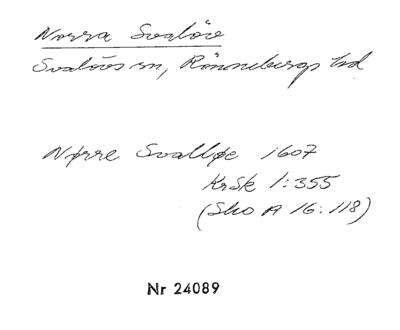 Norra Svalöv
Svalövs sn, Rönnebergs hd
Nørre Svalløe 1607
KrSk 1:355
(Sko A 16:118)
Nr 24089